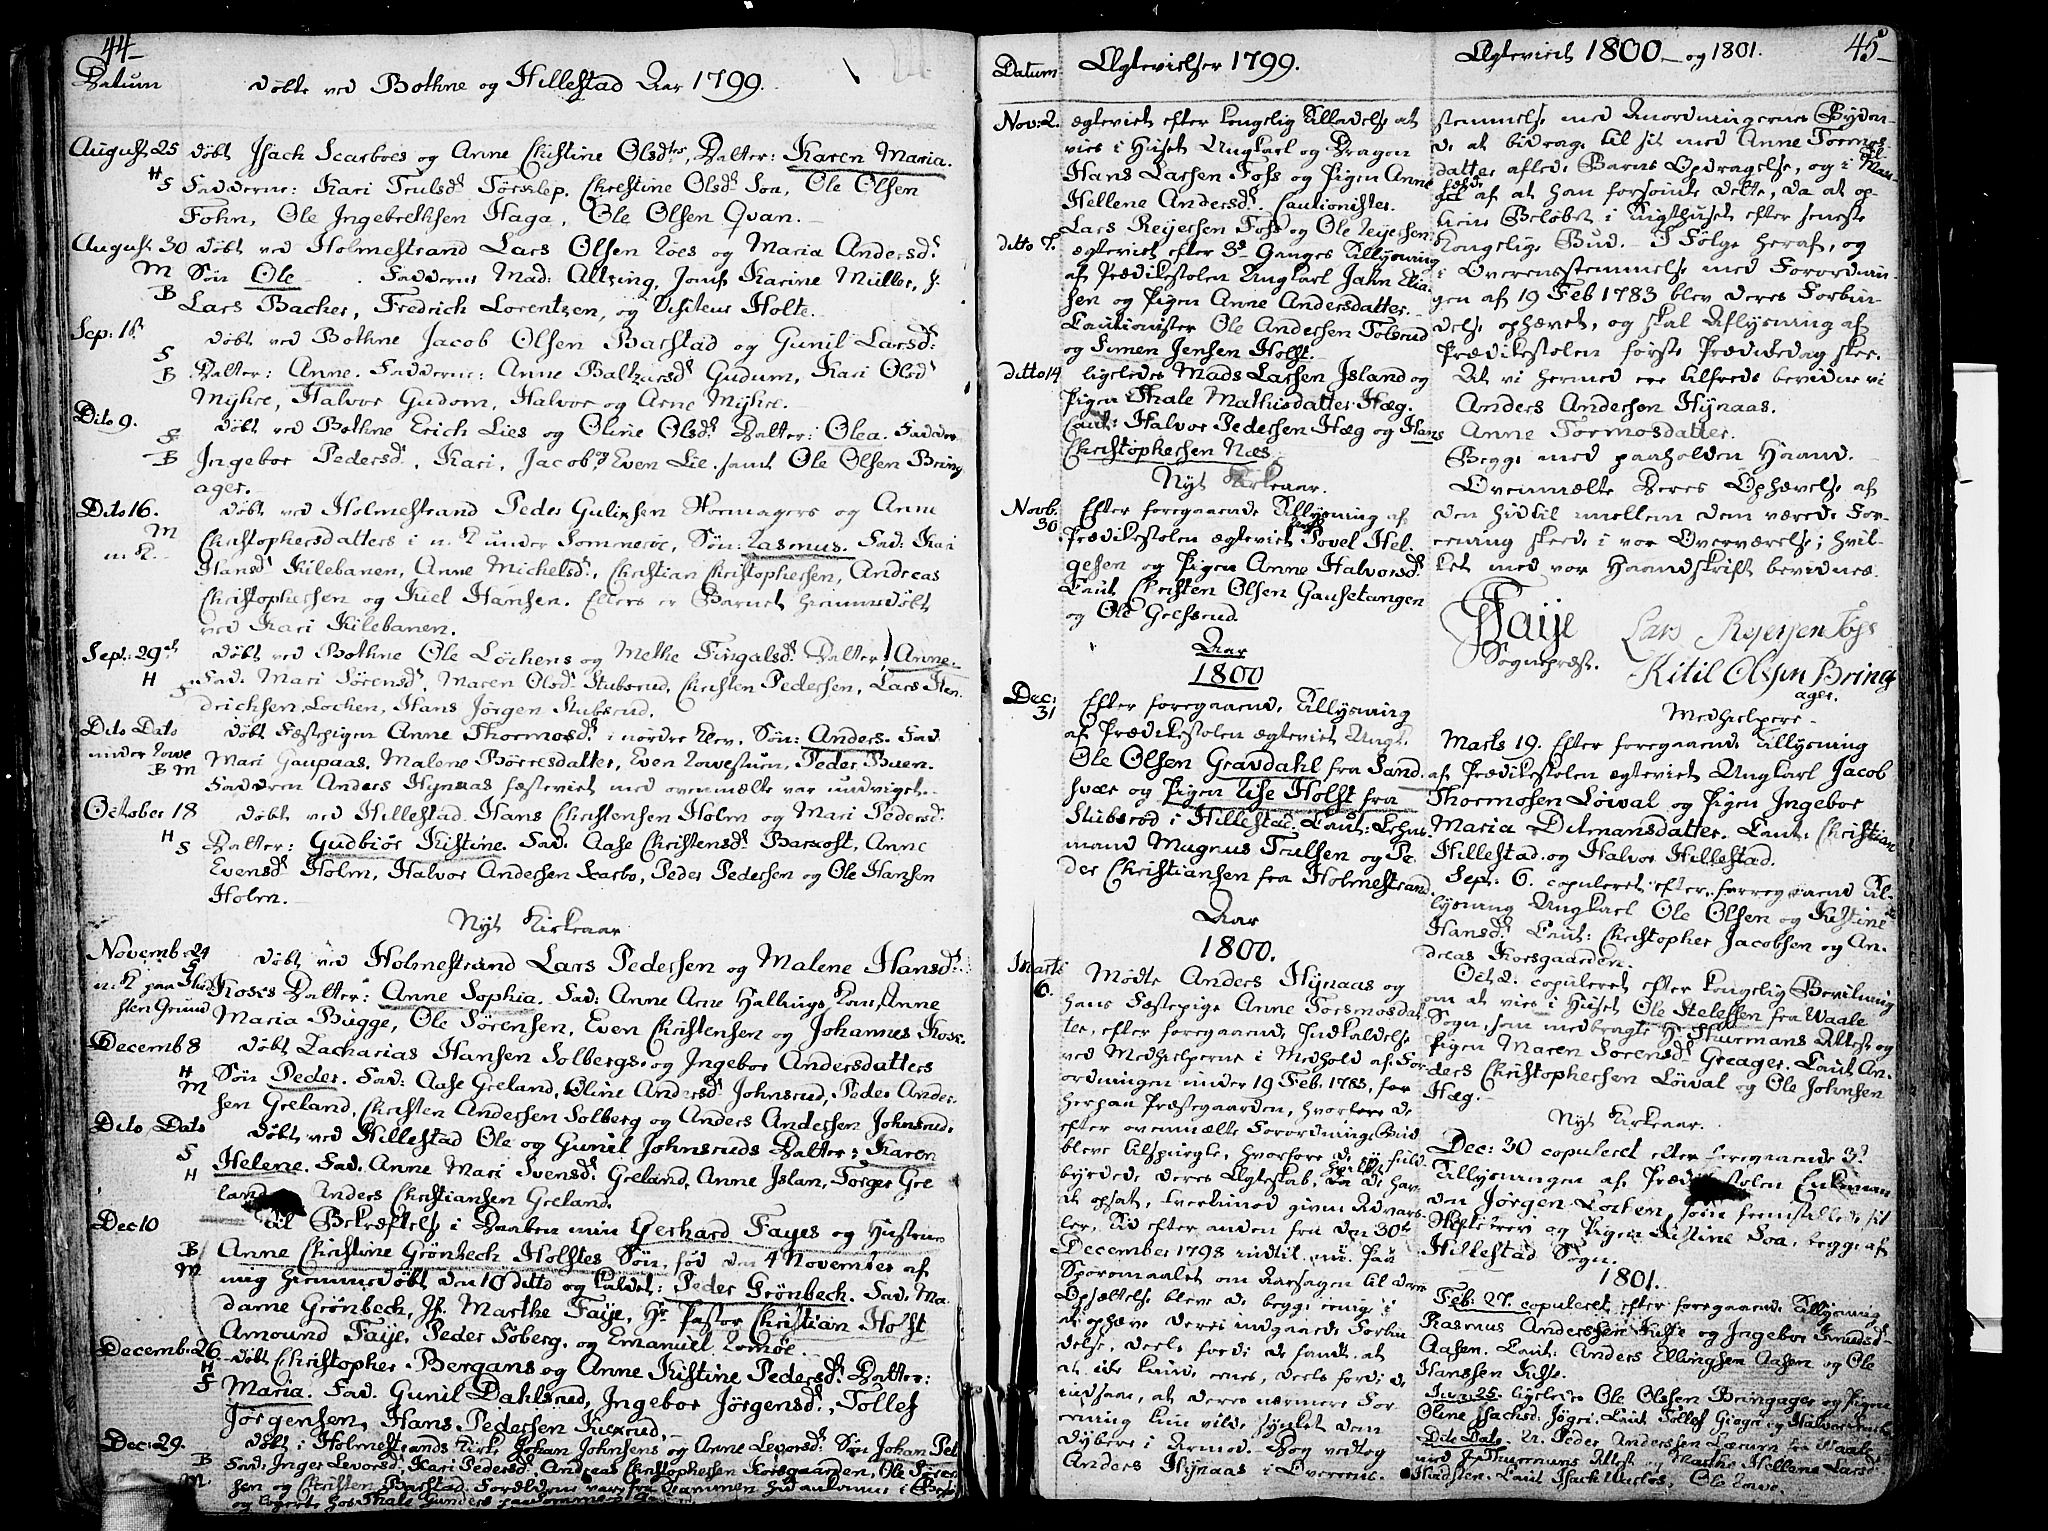 44
Datum
döbte ved Bothne og Hillestad Aar 1799.
August 25 döbt Isach Scarboes og Anne Christine Olsdtrs Datter: Karen Maria.
H S Fadderne: Kari Trulsd. Torsklep, Christine Olsd. Soa, Ole Olsen
Fohn, Ole Ingebrethsen Haga, Ole Olsen Qvan.
August 30 döbt ved Holmestrand Lars Olsen Roes og Maria Andersd.
M Sön Ole. Fadderne Mad: Altzing, Jomf. Karine Müller, H.
B Lars Bacher, Fredrich Lorentzen, og Visiteur Holte.
Sep: 1st döbt ved Bothne Jacob Olsen Barstad og Gunil Larsd:
S B Datter: Anne. Fadderne: Anne Baltzarsd. Gudum, Kari Olsd.
Myhre, Halvor Gudom, Halvor og Arne Myhre.
Dito 9. döbt ved Bothne Erich Lies og Oline Olsd. Datter: Olea. Fadder
S B Ingebor Pedersd., Kari, Jacob og Even Lie, samt Ole Olsen Bring
ager.
Dito 16. döbt ved Holmestrand Peder Gulixsen Skomagers og Anne
M Christophersdatters i n. K under Sommeröe, Sön: Rasmus. Fad: Kari
n. K. Hansd. Kilebanen, Anne Michelsd., Christian Christophersen, Andreas
Christophersen og Kiel Hansen. Ellers er Barnet hiemmedöbt
ved Kari Kilebanen.
Sept: 29de döbt ved Bothne Ole Löchens og Methe Fingalsd. Datter: Anne.
H S Fad. Mari Sörensd., Maren Olsd. Stubsrud, Christen Pedersen, Lars Hen
drichsen Lochen, Hans Jörgen Stubsrud.
Dito Dato döbt Festepigen Anne Thormosd. i nordre Klev. Sön: Anders. Fad.
under Rowe Mari Gaupaas, Malene Börresdatter, Even Rowestuen, Peder Buen.
B M Faderen Anders Hynaas festeviet med ovenmelte var undviget.
October 18 döbt ved Hillestad Hans Christensen Holm og Mari Pedersd.
H S Datter: Gudbiör Kistine. Fad. Aase Christensd. Barkost, Anne
Evensd. Holm, Halvor Andersen Scarbo, Peder Pedersen og Ole Hansen
Holm.
Nyt Kirkeaar
Novemb: 24 döbt ved Holmestrand Lars Pedersen og Malene Hansd.
n. K paa Koses Datter: Anne Sophia. Fad: Anne Arne Hallings Kone, Anne
sten Grund Maria Bugge, Ole Sörensen, Even Christensen og Johannes Kose.
Decemb 8 döbt Zacharias Hansen Solbergs og Ingebor Andersdatters
H M Sön Peder. Fad: Aase Greland, Oline Andersd. Johnsrud, Peder Ander
sen Greland, Christen Andersen Solberg og Anders Andersen Johnsrud.
Dito Dato döbt ved Hillestad Ole og Gunil Johnsruds Datter: Karen
S H Helene. Fad. Anne Mari Svensd. Greland, Anne Islan, Torger Gre
land, Anders Christiansen Greland.
Dec 10 til Bekræftelse i Daaben min Gerhard Fayes og Hustrue
B M Anne Christine Grönbech Holstes Sön, föd den 4 November af
mig hiemmedöbt den 10 ditto og kaldet: Peder Grönbech. Fad. Ma
dame Grönbech, Jf. Marthe Faije, Hr Pastor Christian Holst
Amound Faije, Peder Soberg, og Emanuel Romöe.
Decemb: 26 döbt Christopher Bergans og Anne Kistine Pedersd. Datter:
H S Maria. Fad. Gunil Dahlsrud, Ingebor Jörgensd., Tollef
Jörgensen, Hans Pedersen Kexrud.
Dec: 29. döbt i Holmestrands Kirke Johan Johnsens og Anne Levorsd: Sön Johan Pet
B Fad: Inger Levorsd. Kari Pedersd. Andreas Christophersen Korsgaarden, Ole Sören
M sen og Christen Barstad. Forældrene vare fra Drammen hid ankomne i Besög
og logerte hos Thale Gunders
Datum Egtevielser 1799.
Nov: 2. egteviet efter kongelig Tilladelse at
vies i Huset Ungkarl og Dragon
Hans Larsen Foss og Pigen Anne
Hellene Andersd. Cautionister.
Lars Reyersen Foss og Ole Reyersen.
ditto 7. egteviet efter 3de Ganges Tillysning
af Prædikestolen Ungkarl Jahn Elia
sen og Pigen Anne Andersdatter.
Cautionister Ole Andersen Tolsrud
og Simen Jensen Holst.
ditto 14 ligeledes Mads Larsen Island og
Pigen Thale Mathisdatter Hæg.
Caut: Halvor Pedersen Hæg og Hans
Christophersen Næs.
Nyt Kirkeaar.
Novb. 30 Efter foregaaende Tillysning af
Prædikestolen egteviet Povel Hel
gesen og Pigen Anne Halvorsd.
Caut Christen Olsen Gausetangen
og Ole Grefsrud.
Aar
1800
Dec: 31 Efter foregaaende Tillysning
af Prædikestolen egteviet Ungk.
Ole Olsen Gravdahl fra Sand
svær og Pigen Lise Holst fra
Stubsröd i Hillestad. Caut: Lehns
mand Mugnus Trulsen og Pe
der Christiansen fra Holmestrand.
Aar
1800.
Marts 6. Mödte Anders Hynaas og
hans Festepige Anne Tormosdat
ter, efter foregaaende Indkaldelse
ved Medhielperne i Medhold af For
ordningen under 19 Feb. 1783, for
her paa Præstegaarden, hvor de
efter ovenmelte Forordnings Bud
bleve tilspurgte, hvorfore de ei fuld
byrdede deres Egteskab, da de har
de opsat, uagtet givne Advars
ler, Tid efter anden fra den 30te
December 1798 indtil nu. Paa
Spörsmaalet om Aarsagen til deres
Opsættelse bleve de begge enige i
at ophæve deres indgaaede Forbin
delse, deels fordi de fandt at
de ikke kunde enes, deels fordi de
indsaae, at deres nærmere For
ening kun vilde synket dem
dybere i Armod. Dog vedtog
Anders Hynaas i Overens
Egteviede 1800 og 1801. 45
stemmelse med Anordningernes Byden
de at bidrage til sit med Anne Tormos
datter aflede Barns Opdragelse, og i Til
fælde af at han forsömte dette, da at op
hæve Belöbet i Tugthuset efter seneste
Kongelige Bud. I Fölge heraf, og
i Overensstemmelse med Forordnin
gen af 19 Feb 1783 blev deres Forbin
delse ophævet, og skal Aflysning af
Prædikestolen förste Prædikedag skee.
At vi hermed ere tilfreds bevidne vi
Anders Andersen Hynaas.
Anne Tormosdatter.
Begge med paaholden Haand.
Ovenmelte Deres Ophævelse af
den hidtil imellem dem værede For
eening skede i vor Overværelse; hvil
ket med vor Haandskrift bevidnes
Faije
Sognepræst.
Lars Rejersen Foss
Kitil Olsen Bring
ager.
Medhielpere.
Marts 19. Efter foregaaende Tillysning
af Prædikestolen egteviet Ungkarl Jacob
Thormosen Löwal og Pigen Ingebor
Maria Ditmansdatter. Caut: Christian
Hillestad og Halvor Hillestad.
Sept: 6. copuleret efter foregaaend Til
lysning Ungkarl Ole Olsen og Kistine
Hansd. Caut: Christopher Jacobsen og An
dreas Korsgaarden.
Oct 2. copuleret efter kongelig Bevilning
om at vies i Huset Ole Stelefsen fra Waale
Sogn, som medbragte Hr Thurmans Attest og
Pigen Maren Sorensd. Greager. Caut An
ders Christophersen Löwal og Ole Johnsen
Hæg.
Nyt Kirkeaar.
Dec: 30 copuleret efter foregaaende 3de
Tillysninger af Prædikestolen Enkeman
den Jörgen Lochen, som fremstillede sit
Skiftebrev og Pigen Kistine Soa, begge af
Hillestad Sogn.
1801.
Feb: 27. copuleret efter foregaaende Tillysning
Rasmus Anderssen Kisse og Ingebor Knudsd.
Aasen. Caut: Anders Ellingsen Aasen og Ole
Hanssen Kisse.
Jun: 25. ligeledes Ole Olssen Bringager og Pigen
Oline Isachsd. Jögri. Caut Tollef Gioge og Halvor
Dito Dato. U. Peder Anderssen Lærum fra Waale
med Hr Thurmans Attest og Marthe Hellene Larsd.
Hvidsten. Caut Isach Ole Rowe.